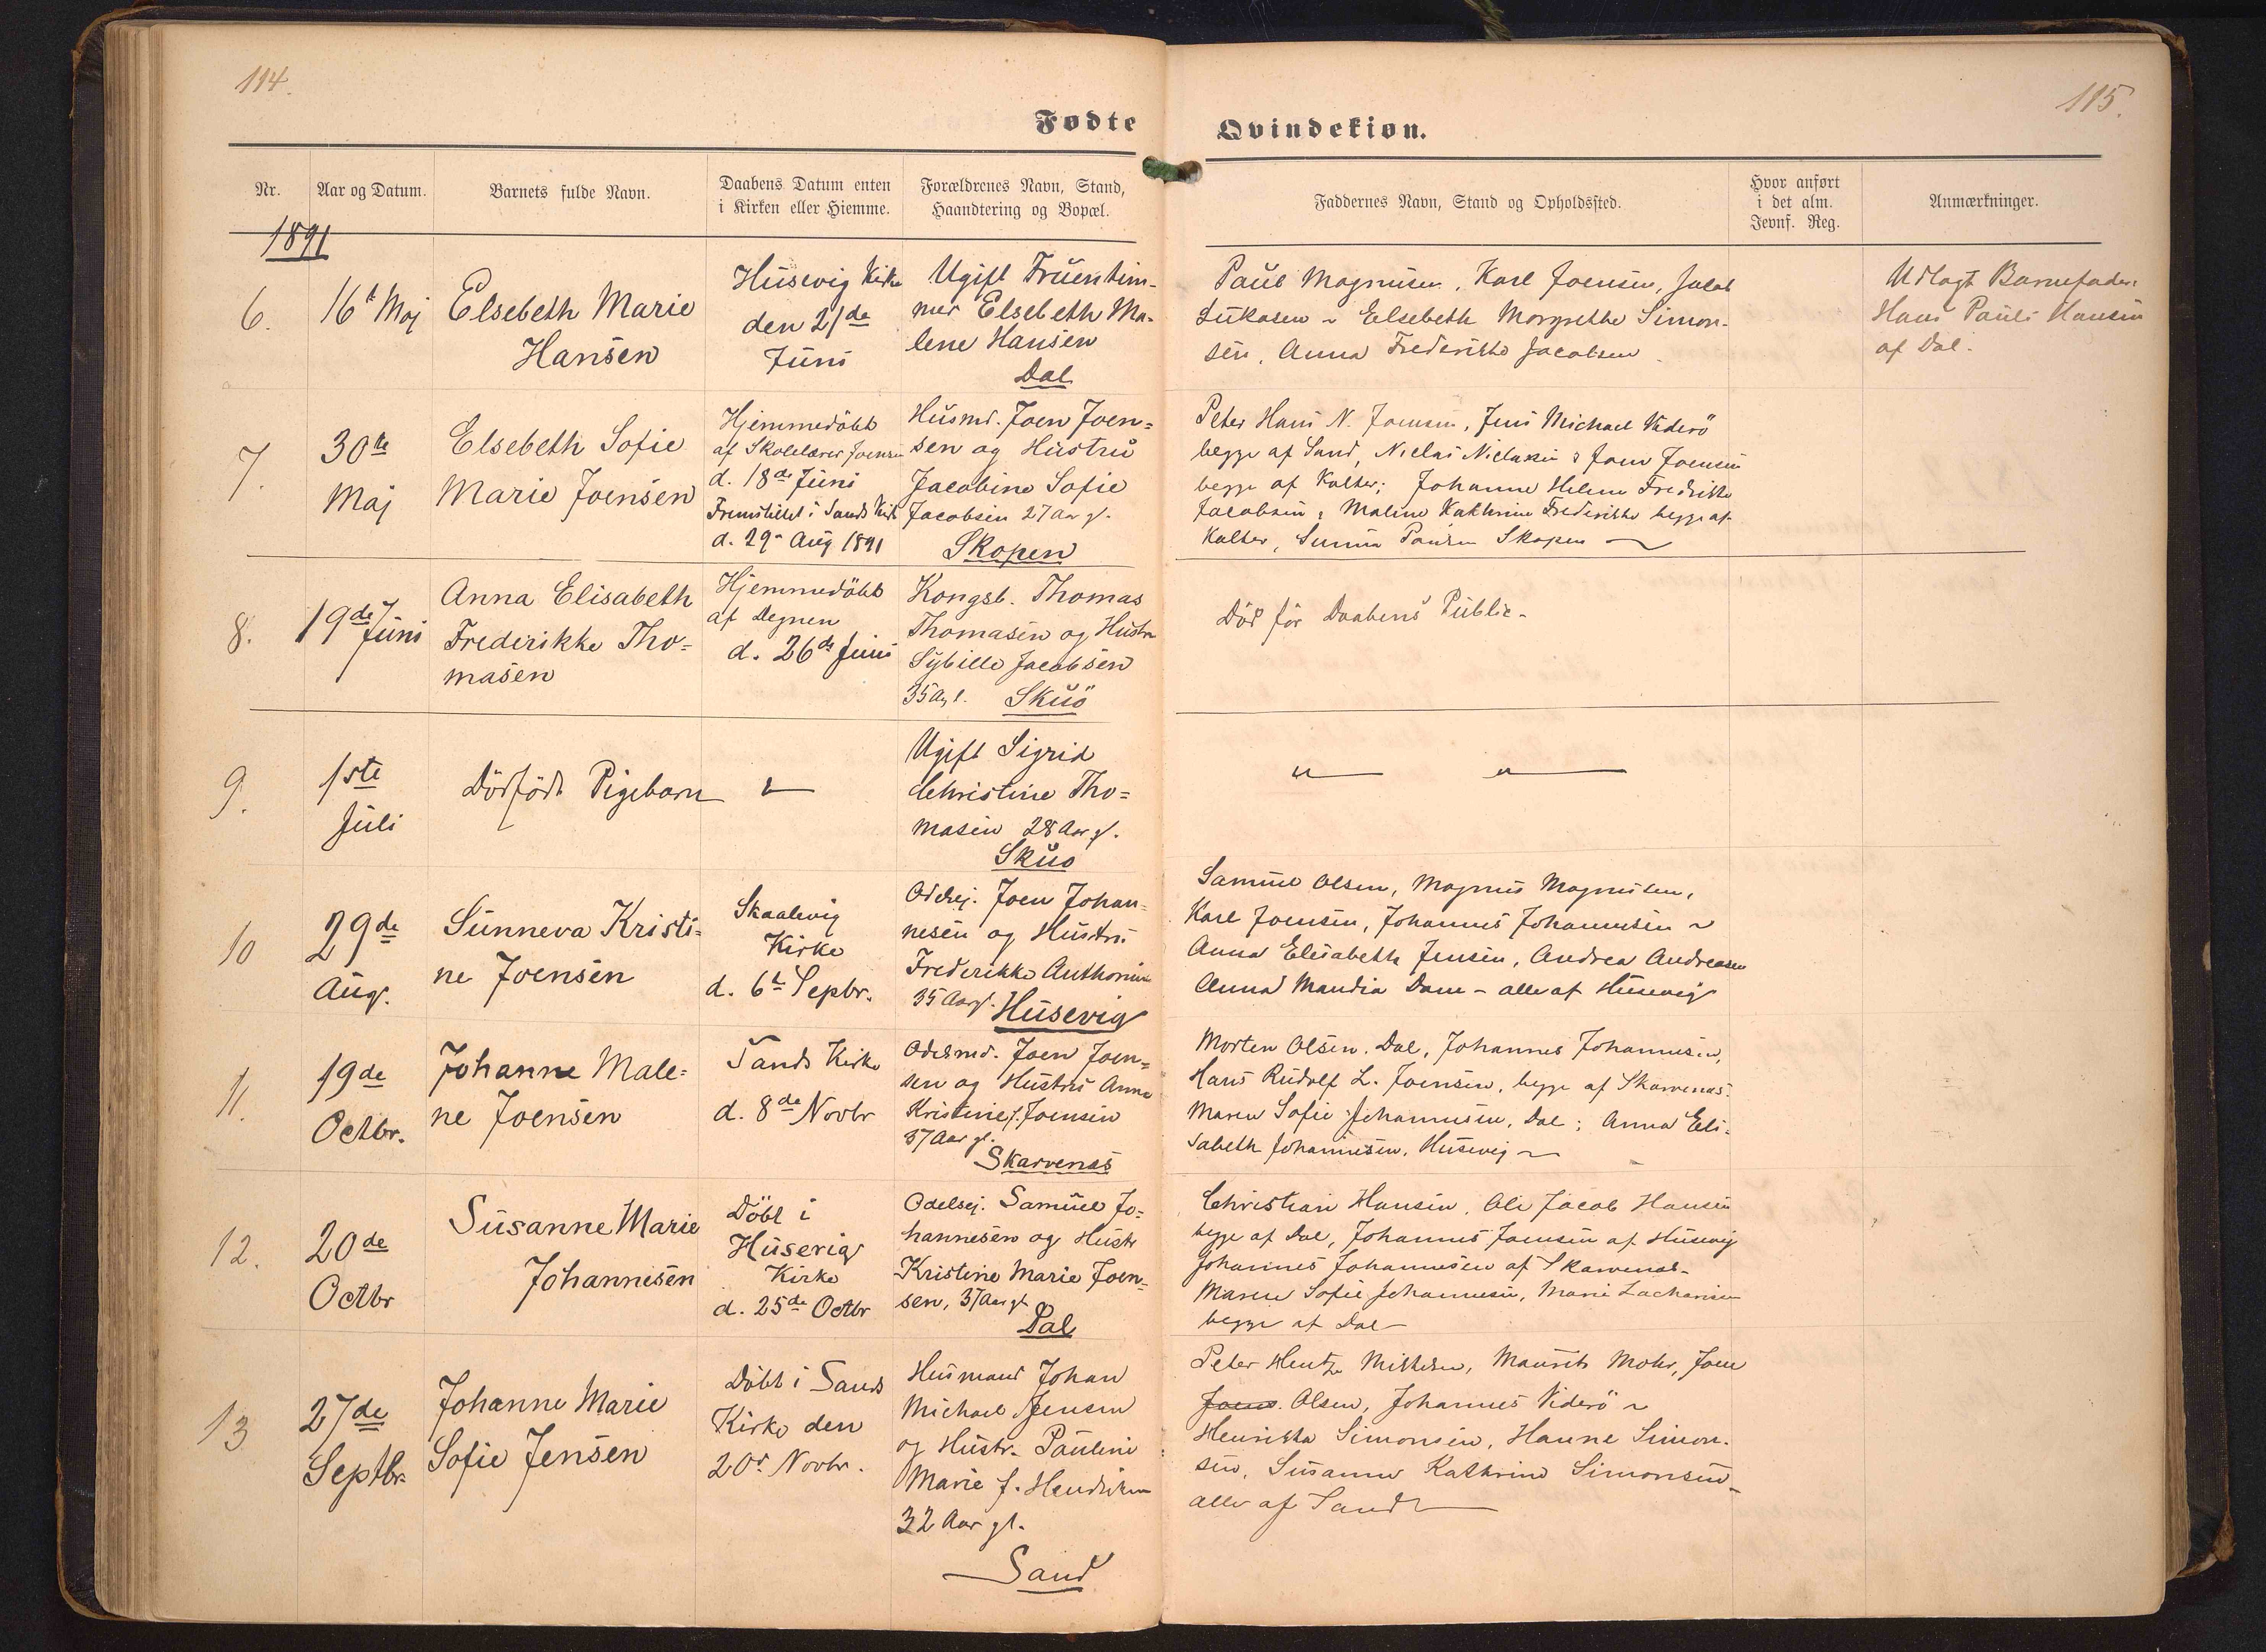 114.
115.
Fødte
Qvindekiøn.
Nr.
Aar og Datum.
Barnets fulde Navn.
Daabens Datum enten
i Kirken eller Hiemme.
Forældrenes Navn, Stand,
Haandtering og Bopæl.
Faddernes Navn, Stand og Opholdssted.
Hvor anført
i det alm.
Jevnf. Reg.
Anmærkninger.
1891
6.
16t Maj
Elsebeth Marie
Hansen
Husevig Kirke
den 21de
Juni
Ugift Fruentim-
mer Elsebeth Ma-
lene Hansen
Dal
Paul Magnusen, Karl Joensen, Jacob
Lukasen ~ Elsebeth Margrethe Simon-
sen, Anna Frederikke Jacobsen
Udlagt Barnefader
Hans Pauli Hansen
af Dal.
7.
30te
Maj
Elsebeth Sofie
Marie Joensen
Hjemmedöbt
af Skolelærer Joensen
d. 18de Juni
Fremstillet i Sands Kirke
d. 29- Aug 1891
Husmd. Joen Joen=
sen og Hustru
Jacobine Sofie
Jacobsen 27 Aar gl.
Skopen
Peter Hans N. Joensen, Jens Michael Viderö
begge af Sand, Niclas Niclasen & Joen Joensen
begge af Kolter; Johanne Helene Fredrikke
Jacobsen, Maline Kathrine Frederikke begge af
Kolter, Sunneva Poulsen Skopen
8.
19de Juni
Anna Elisabeth
Frederikke Tho=
masen
Hjemmedöbt
af Degnen
d. 26de Juni
Kongsb. Thomas
Thomasen og Hustru
Sybille Jacobsen
35 A gl. Skuö
Död för Daabens Public-
9.
1ste
Juli
Dödfödt Pigebarn
"
Ugift Sigrid
Christine Tho=
masen 28 Aar gl.
Skuö
" "
10
29de
Aug.
Sunneva Kristi=
ne Joensen
Skaalevig
Kirke
d. 6t Septbr.
Odelsej. Joen Johan-
nesen og Hustru
Frederikke Anthonine
35 Aar gl. Husevig
Samuel Olsen, Magnus Magnusen,
Karl Joensen, Johannes Johannesen ~
Anna Elisabeth Jensen, Andrea Andreasen
Anna Mandia Dam - alle af Husevig
11.
19de
Octbr.
Johanne Male=
ne Joensen
Sands Kirke
d. 8de Novbr
Odelsmd. Joen Joen=
sen og Hustru Anna
Kristine f. Joensen
37 Aar gl.
Skarvenæs
Morten Olsen, Dal, Johannes Johannesen,
Hans Rudolf L. Joensen, begge af Skarvenæs.
Maren Sofie Johannesen, Dal; Anna Eli-
sabeth Johannesen, Husevig ~
12.
20de
Octbr
Susanne Marie
Johannesen
Döbt i
Husevig
Kirke
d. 25de Octbr
Odelsej. Samuel Jo=
hannesen og Hustr
Kristine Marie Joen=
sen, 37 Aar gl
Dal
Christian Hansen, Ole Jacob Hansen
begge af Dal, Johannes Joensen af Husevig
Johannes Johannesen af Skarvenæs-
Maren Sofie Johannesen, Marie Zachariasen
begge af Dal
13
27de
Septbr
Johanne Marie
Sofie Jensen
Döbt i Sands
Kirke den
20d. Novbr.
Husmand Johan
Michael Jensen
og Hustr. Pauline
Marie f. Hendriksen
32 Aar gl.
Sand
Peter Hentze Mikkelsen, Maurits Mohr, Joen
Joens. Olsen, Johannes Viderö ~
Henrikka Simonsen, Hanne Simon-
sen, Susanne Kathrine Simonsen-
alle af Sand